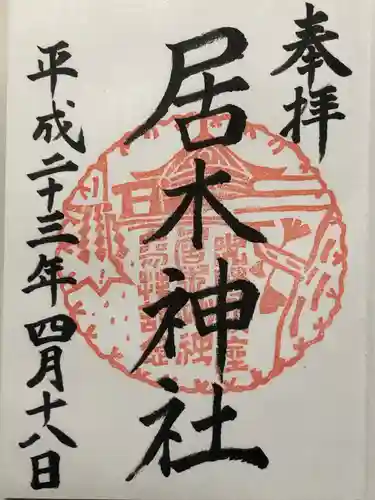 奉拝
居木神社
平成二十三年四月十八日